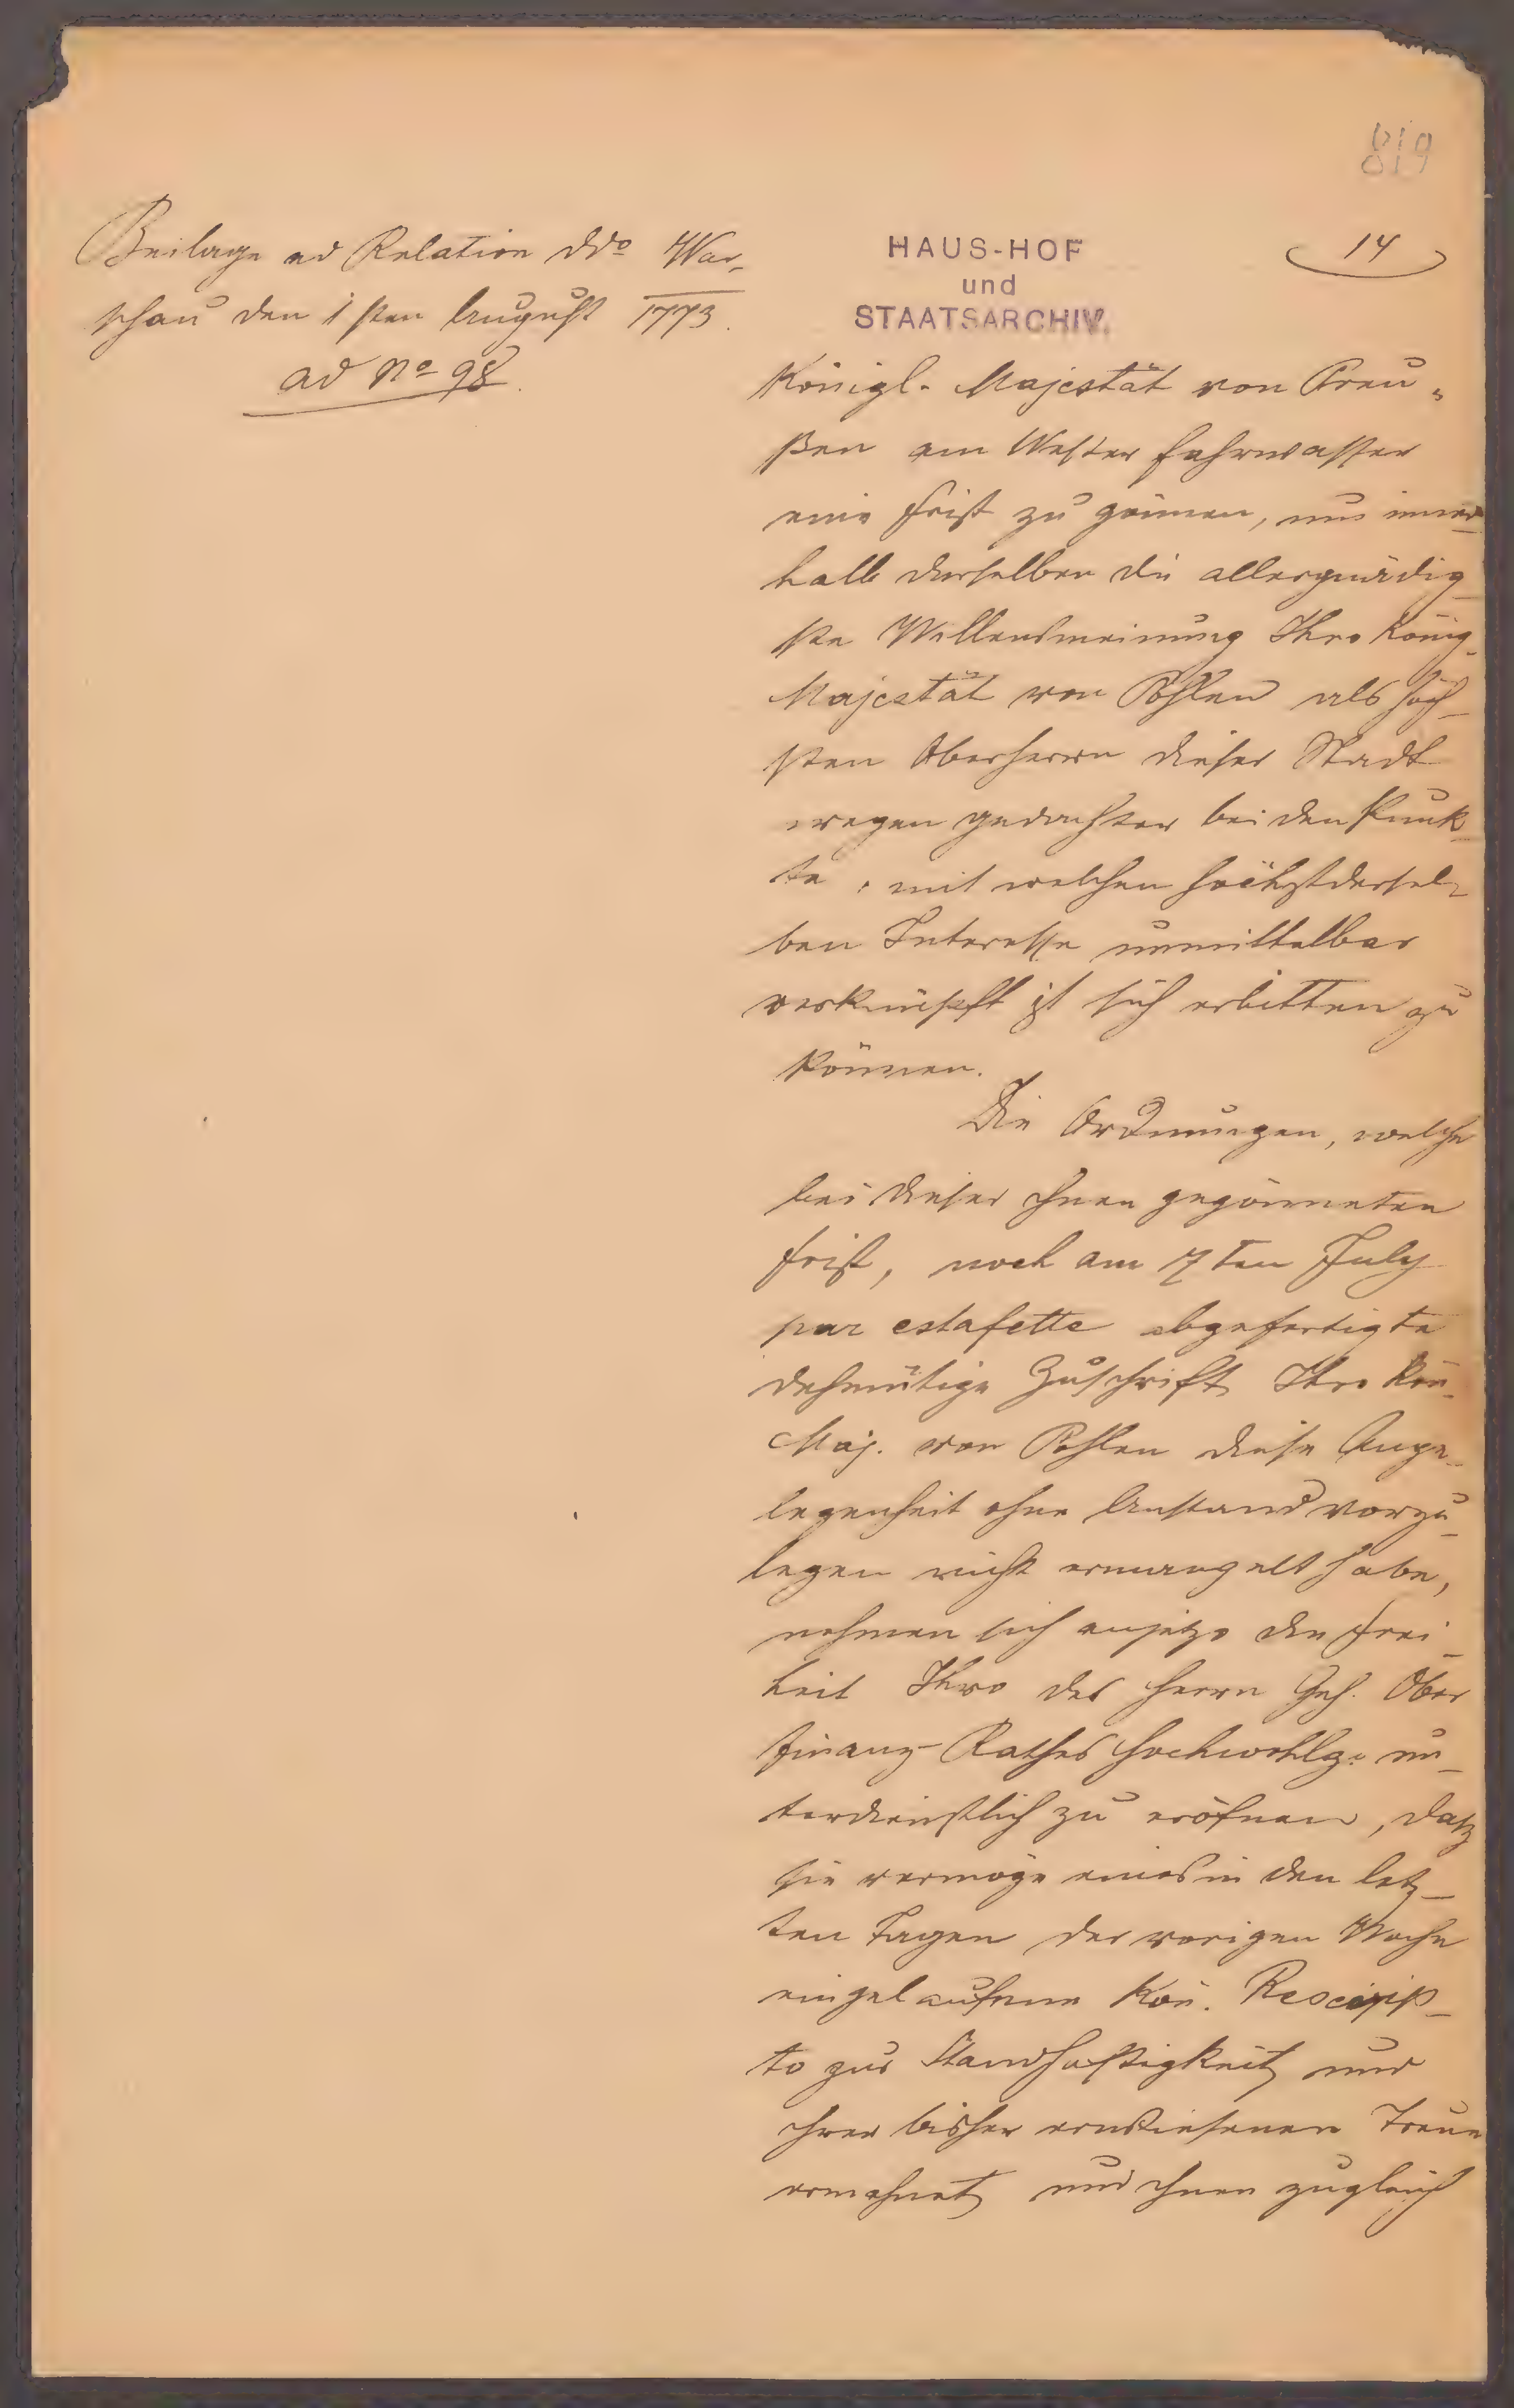 819
Beilage ad Relation ddo War-
schau den 1sten August 1773.
ad No 98.
HAUS-HOF
und
STAATSARCHIV.
14
Königl. Majestät von Preu-
ßen am Wester Fahrwasser
eine Frist zu gönnen, um inner-
halb derselben die allergnädig-
ste Willensmeinung Ihro König.
Majestät von Pohlen als höch-
sten Oberherrn dieser Stadt
wegen gedachter beiden Punk-
te, mit welchen höchstdersel-
ben Interesse unmittelbar
verknüpft ist sich erbitten zu
können.
Die Ordnungen, welche
bei dieser ihnen gegönneten
Frist, noch am 7ten July
par estafette abgefertigte
dehmütige Zuschrift Ihro Kön.
Maj. von Pohlen diese Ange-
legenheit ohne Anstand vorzu-
legen nicht ermangelt habe,
nehmen sich anjetzo die Frei-
heit Ihro des Herrn Geh. Ober
Finanz-Rathes Hochwohlg. un-
terdienstlich zu eröfnen, daß
sie vermöge eines in den letz-
ten Tagen der vorigen Woche
eingelaufenen Kön. Rescrip-
to zur Standhaftigkeit und
ihrer bisher erwiesenen Treue
ermahnet und ihnen zugleich